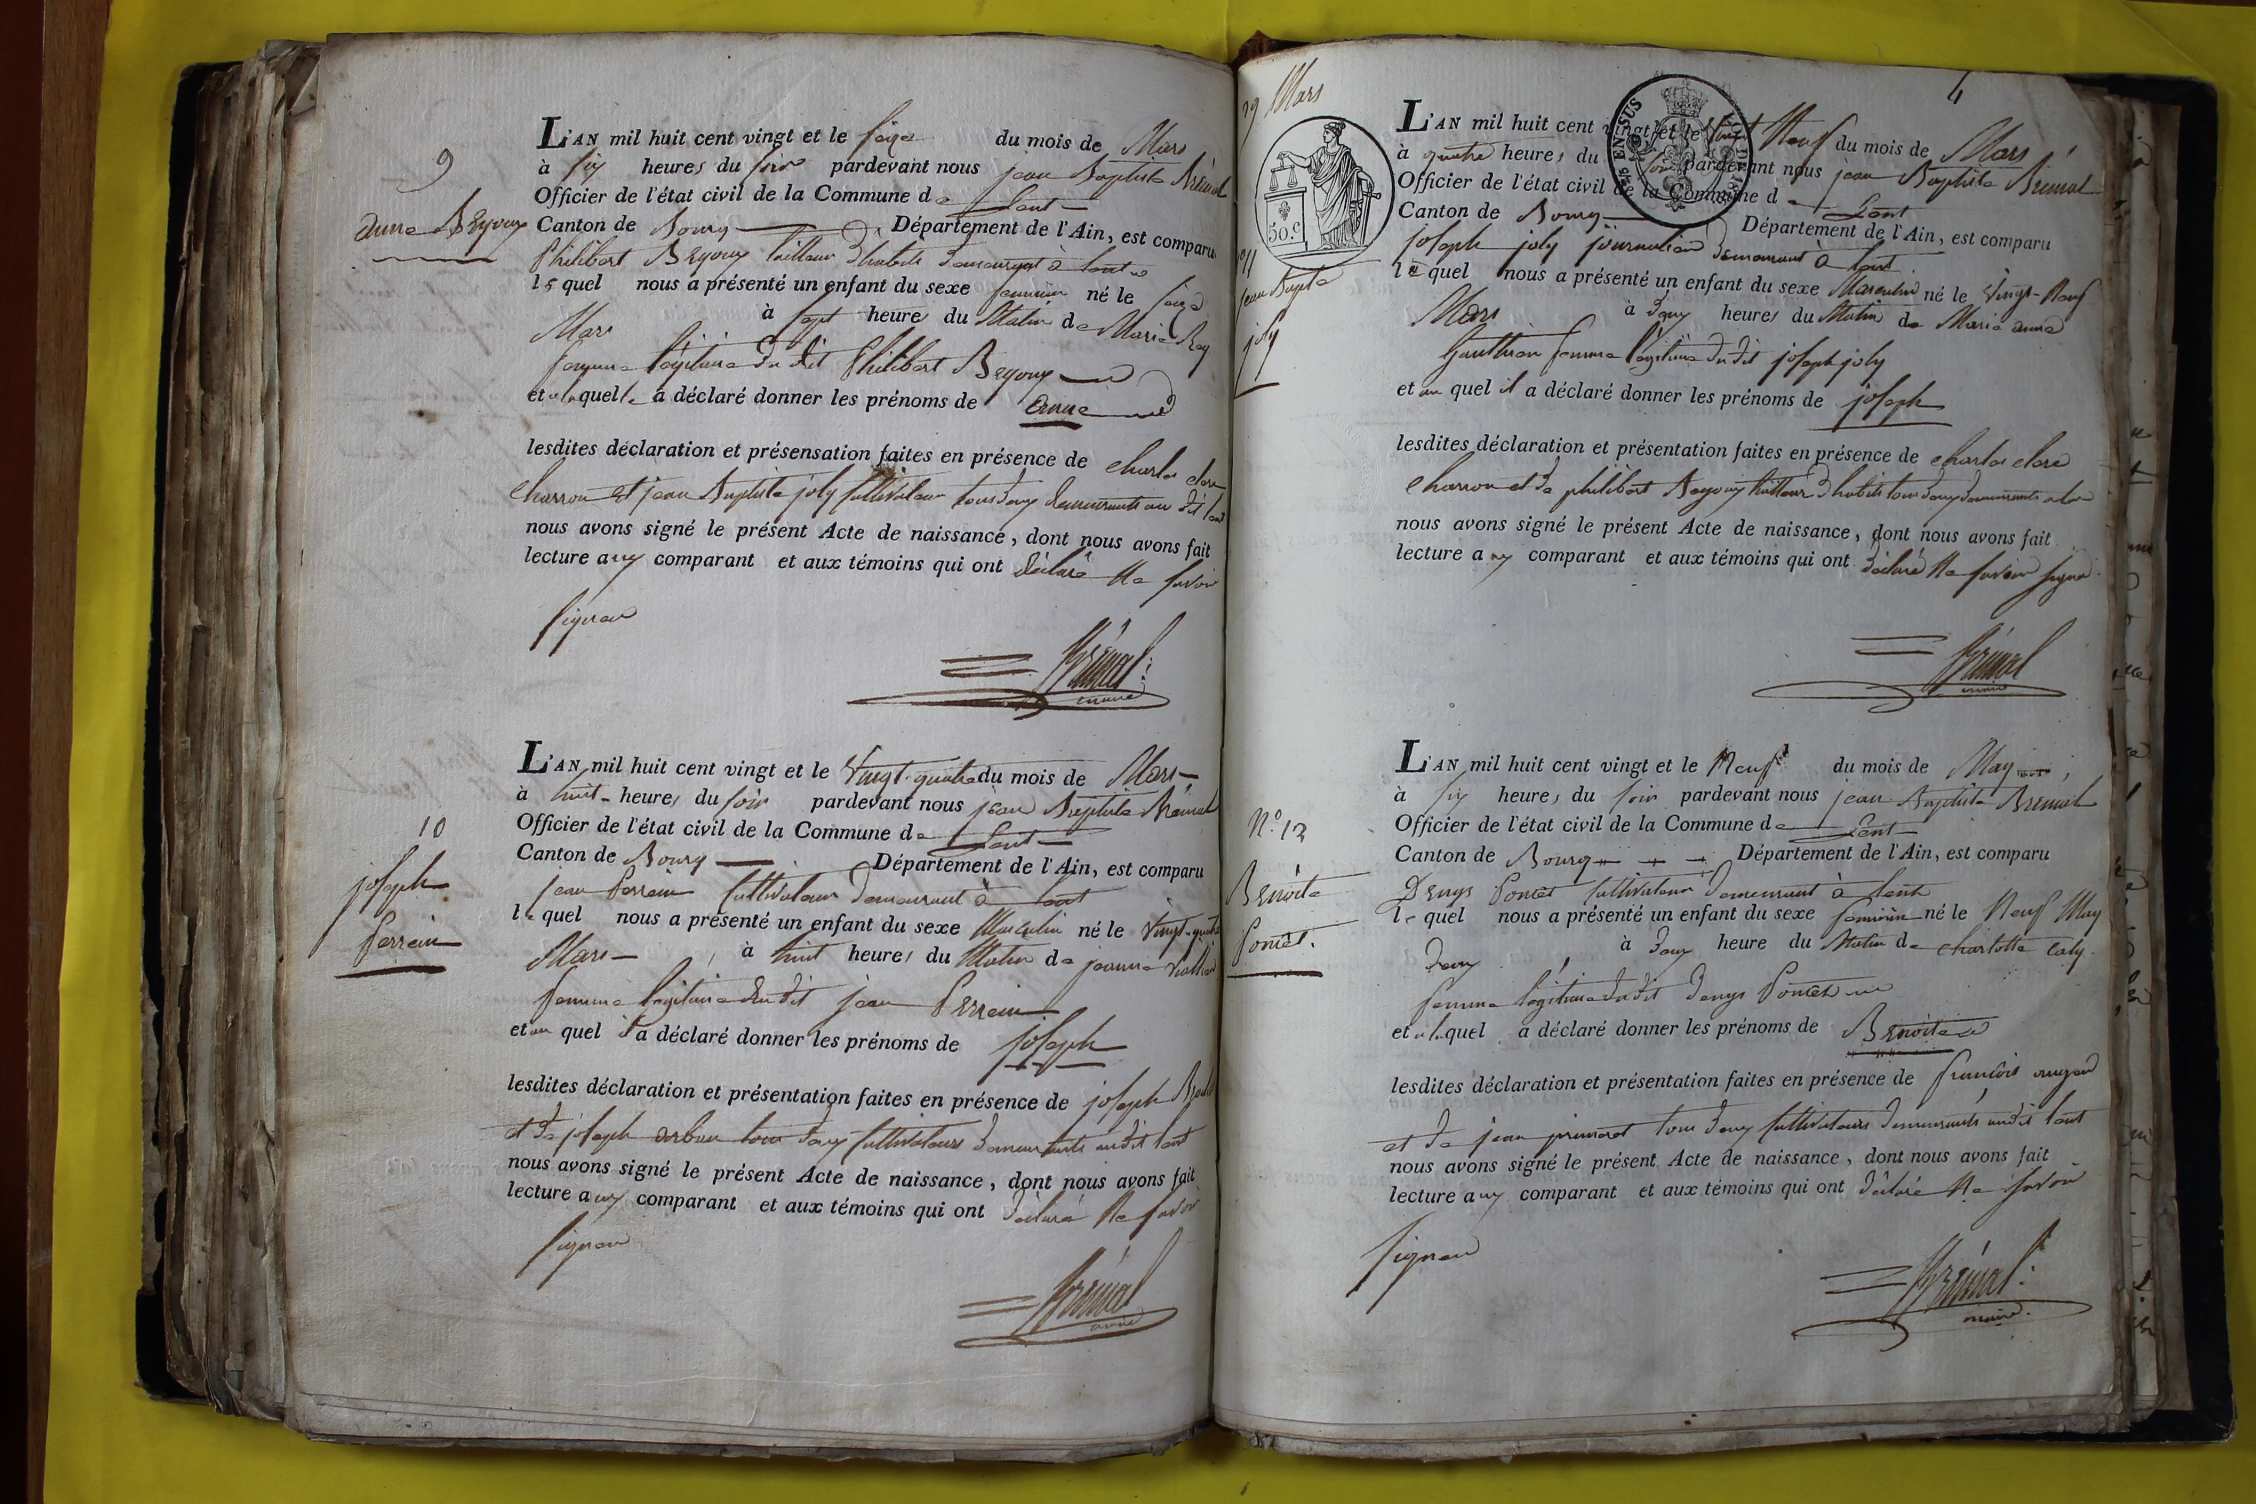 9
anne Beyoux
L'AN mil huit cent vingt et le seize du mois de Mars
à six heures du soir pardevant nous jean Baptiste Brémal
Officier de l'état civil de la Commune de Lent
Canton de Bourg Département de l'Ain, est comparu
Philibert Beyoux tailleur d'habits demeurant à Lent
lequel nous a présenté un enfant du sexe feminin né le seize
Mars à sept heures du Matin de Marie Rey
femme légitime du dit Philibert Beyoux
et a laquelle a déclaré donner les prénoms de anne
lesdites déclaration et présensation faites en présence de charles clere
charron et jean Baptiste joly cultivateur tous deux demeurants au dit Lent
nous avons signé le présent Acte de naissance, dont nous avons fait
lecture aux comparant et aux témoins qui ont déclaré Ne savoir
signer
Brémal
maire
10
joseph
Perrein
L'AN mil huit cent vingt et le Vingt-quatre du mois de Mars
à huit heures du soir pardevant nous jean Baptiste Brémal
Officier de l'état civil de la Commune de Lent
Canton de Bourg Département de l'Ain, est comparu
jean Perrein cultivateur demeurant à Lent
lequel nous a présenté un enfant du sexe Masculin né le Vingt-quatre
Mars à huit heures du Matin de jeanne
femme légitime du dit jean Perrein
et au quel il a déclaré donner les prénoms de joseph
lesdites déclaration et présentation faites en présence de joseph
et de joseph arban tous deux cultivateurs demeurants audit Lent
nous avons signé le présent Acte de naissance, dont nous avons fait
lecture aux comparant et aux témoins qui ont déclaré Ne savoir
signer
Brémal
maire
29 Mars
4
50.c
EN SUS
n° 11
jean Bapte
joly
L'AN mil huit cent vingt et le Vingt Neuf du mois de Mars
à quatre heures du soir pardevant nous jean Baptiste Brémal
Officier de l'état civil de la Commune de Lent
Canton de Bourg Département de l'Ain, est comparu
joseph joly journalier demeurant à Lent
lequel nous a présenté un enfant du sexe Masculin né le Vingt-Neuf
Mars à deux heures du Matin de Marie anne
Gauthier femme légitime du dit joseph joly
et au quel il a déclaré donner les prénoms de joseph
lesdites déclaration et présentation faites en présence de charles clere
charron et de philibert Beyoux tailleur d'habits tous deux demeurants a Lent
nous avons signé le présent Acte de naissance, dont nous avons fait
lecture aux comparant et aux témoins qui ont déclaré Ne savoir signer
Brémal
maire
N.° 12
Benoite
Poncet.
L'AN mil huit cent vingt et le Neuf du mois de May
à six heures du soir pardevant nous jean Baptiste Brémal
Officier de l'état civil de la Commune de Lent
Canton de Bourg Département de l'Ain, est comparu
Denys Poncet cultivateur demeurant à Lent
lequel nous a présenté un enfant du sexe feminin né le Neuf May
à deux heure du Matin de charlotte caty
femme légitime du dit Denys Poncet
et a laquel a déclaré donner les prénoms de Benoite
lesdites déclaration et présentation faites en présence de françois
et de jean tous deux cultivateurs demeurants audit Lent
nous avons signé le présent Acte de naissance, dont nous avons fait
lecture aux comparant et aux témoins qui ont déclaré Ne savoir
signer
Brémal
maire.